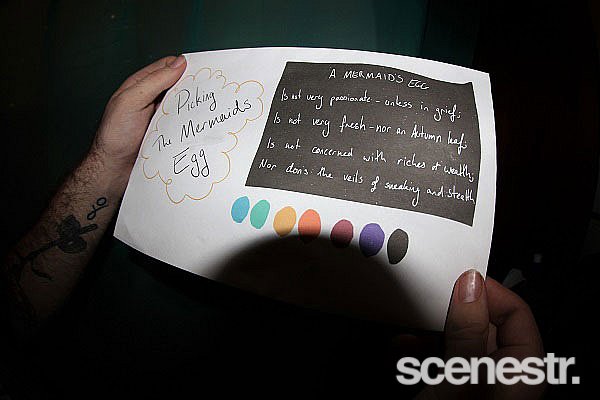 Picking
The Mermaids
Egg
A MERMAID'S EGG
Is not very passionate - unless in grief;
Is not very fresh - nor an Autumn leaf;
Is not concerned with riches or wealth;
Nor don's the veils of sneaking and stealth
scenestr.